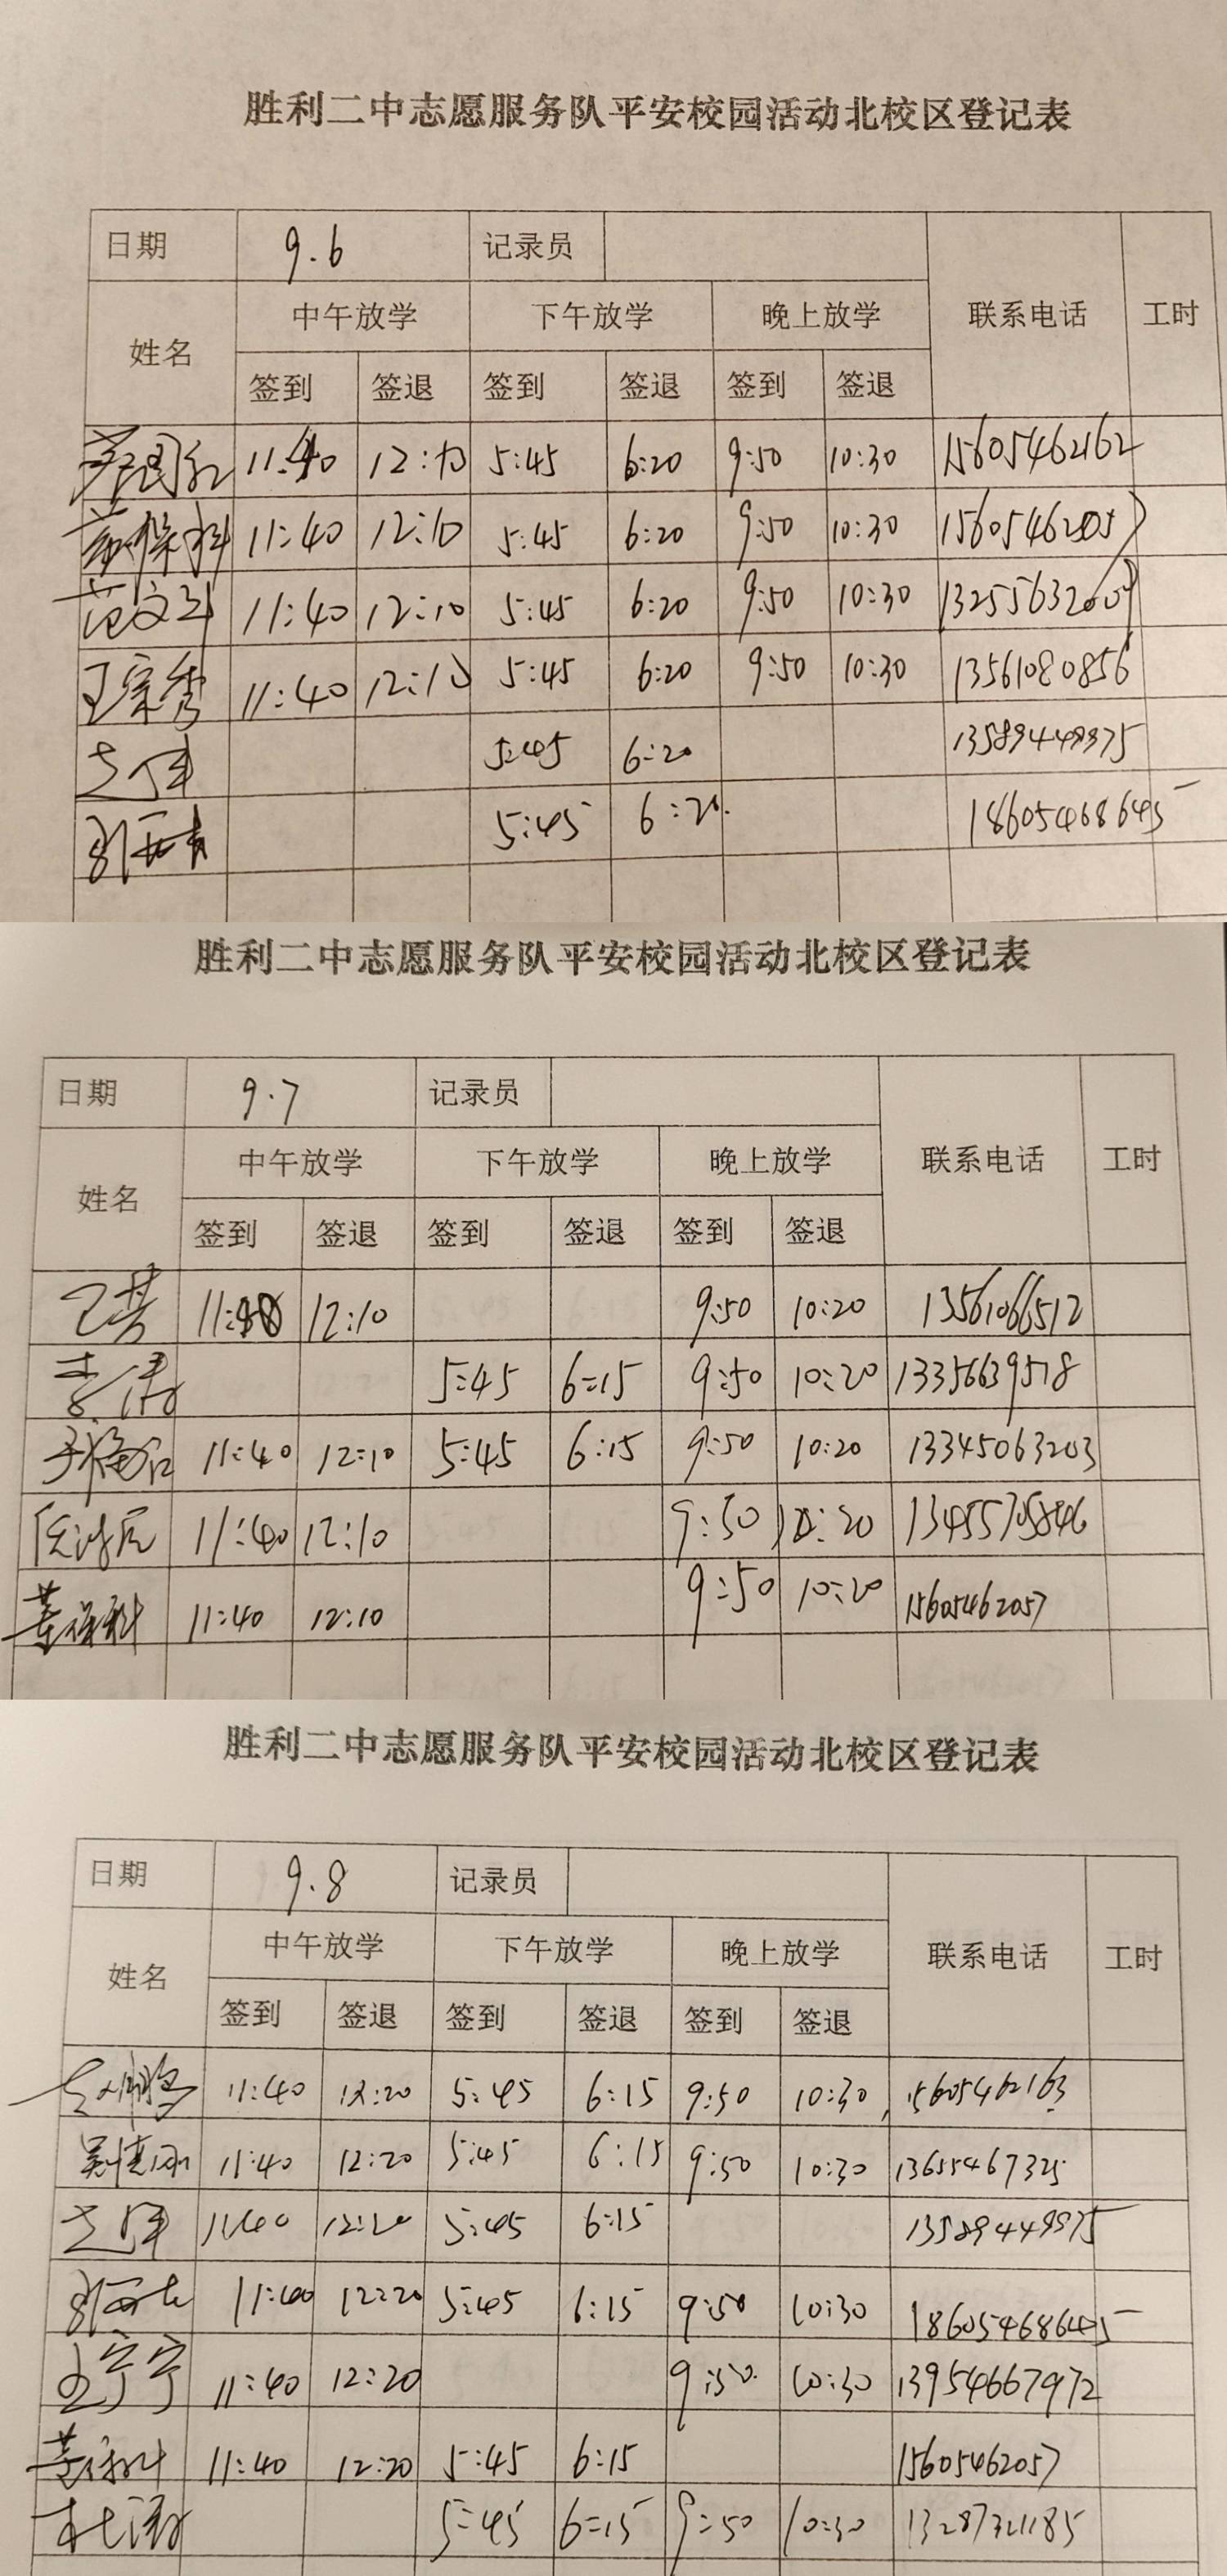 胜利二中志愿服务队平安校园活动北校区登记表
日期 9.6 记录员
姓名 中午放学 下午放学 晚上放学 联系电话 工时
签到 签退 签到 签退 签到 签退
11:40 12:10 5:45 6:20 9:50 10:30 15605462162
11:40 12:10 5:45 6:20 9:50 10:30
范文 11:40 12:10 5:45 6:20 9:50 10:30
王宗秀 11:40 12:10 5:45 6:20 9:50 10:30 13561080856
5:45 6:20
5:45 6:20 18605468645
胜利二中志愿服务队平安校园活动北校区登记表
日期 9.7 记录员
姓名 中午放学 下午放学 晚上放学 联系电话 工时
签到 签退 签到 签退 签到 签退
12:10 9:50 10:20 13561066512
李涛 5:45 6:15 9:50 10:20 13356639518
11:40 12:10 5:45 6:15 9:50 10:20 13345063203
11:40 12:10 9:50 10:20
11:40 12:10 9:50 10:20 15605462057
胜利二中志愿服务队平安校园活动北校区登记表
日期 9.8 记录员
姓名 中午放学 下午放学 晚上放学 联系电话 工时
签到 签退 签到 签退 签到 签退
11:40 12:20 5:45 6:15 9:50 10:30 15605462163
11:40 12:20 5:45 6:15 9:50 10:30 13655467325
11:40 12:20 5:45 6:15
11:40 12:20 5:45 6:15 9:50 10:30 18605468645
王宁宁 11:40 12:20 9:50 10:30 13954667972
11:40 12:20 5:45 6:15 15605462057
杜涛 5:45 6:15 9:50 10:30 13287321185